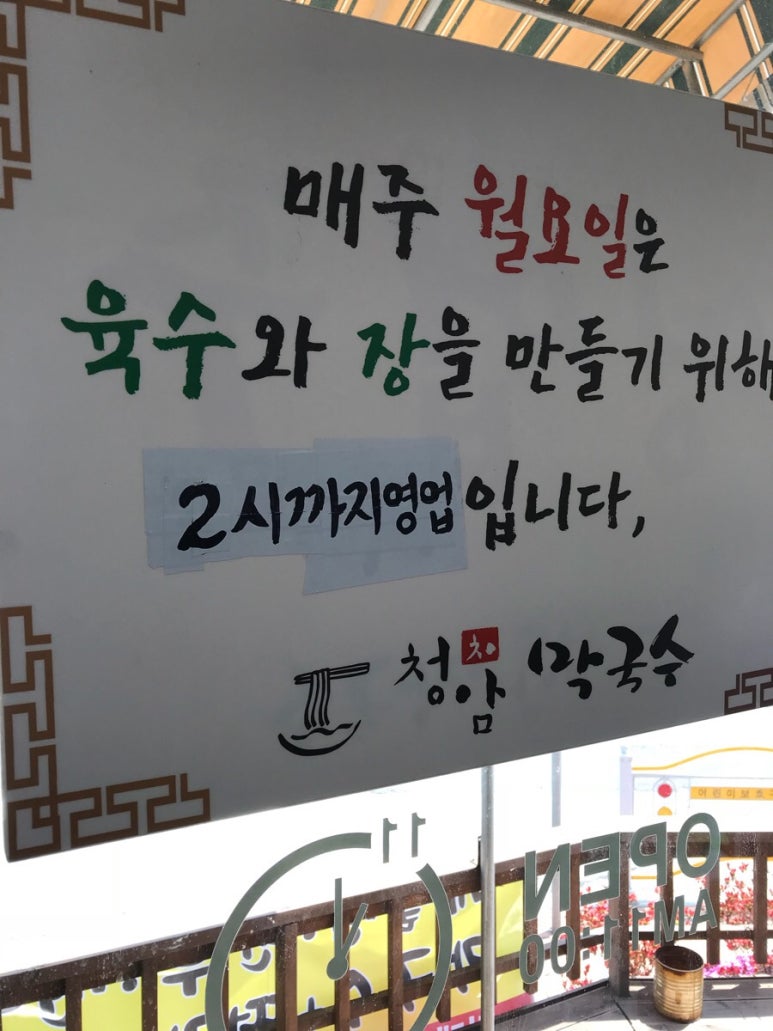 매주 월요일은
육수와 장을 만들기 위해
2시까지영업입니다,
청암 막국수
11
OPEN
AM11:00
어린이보호